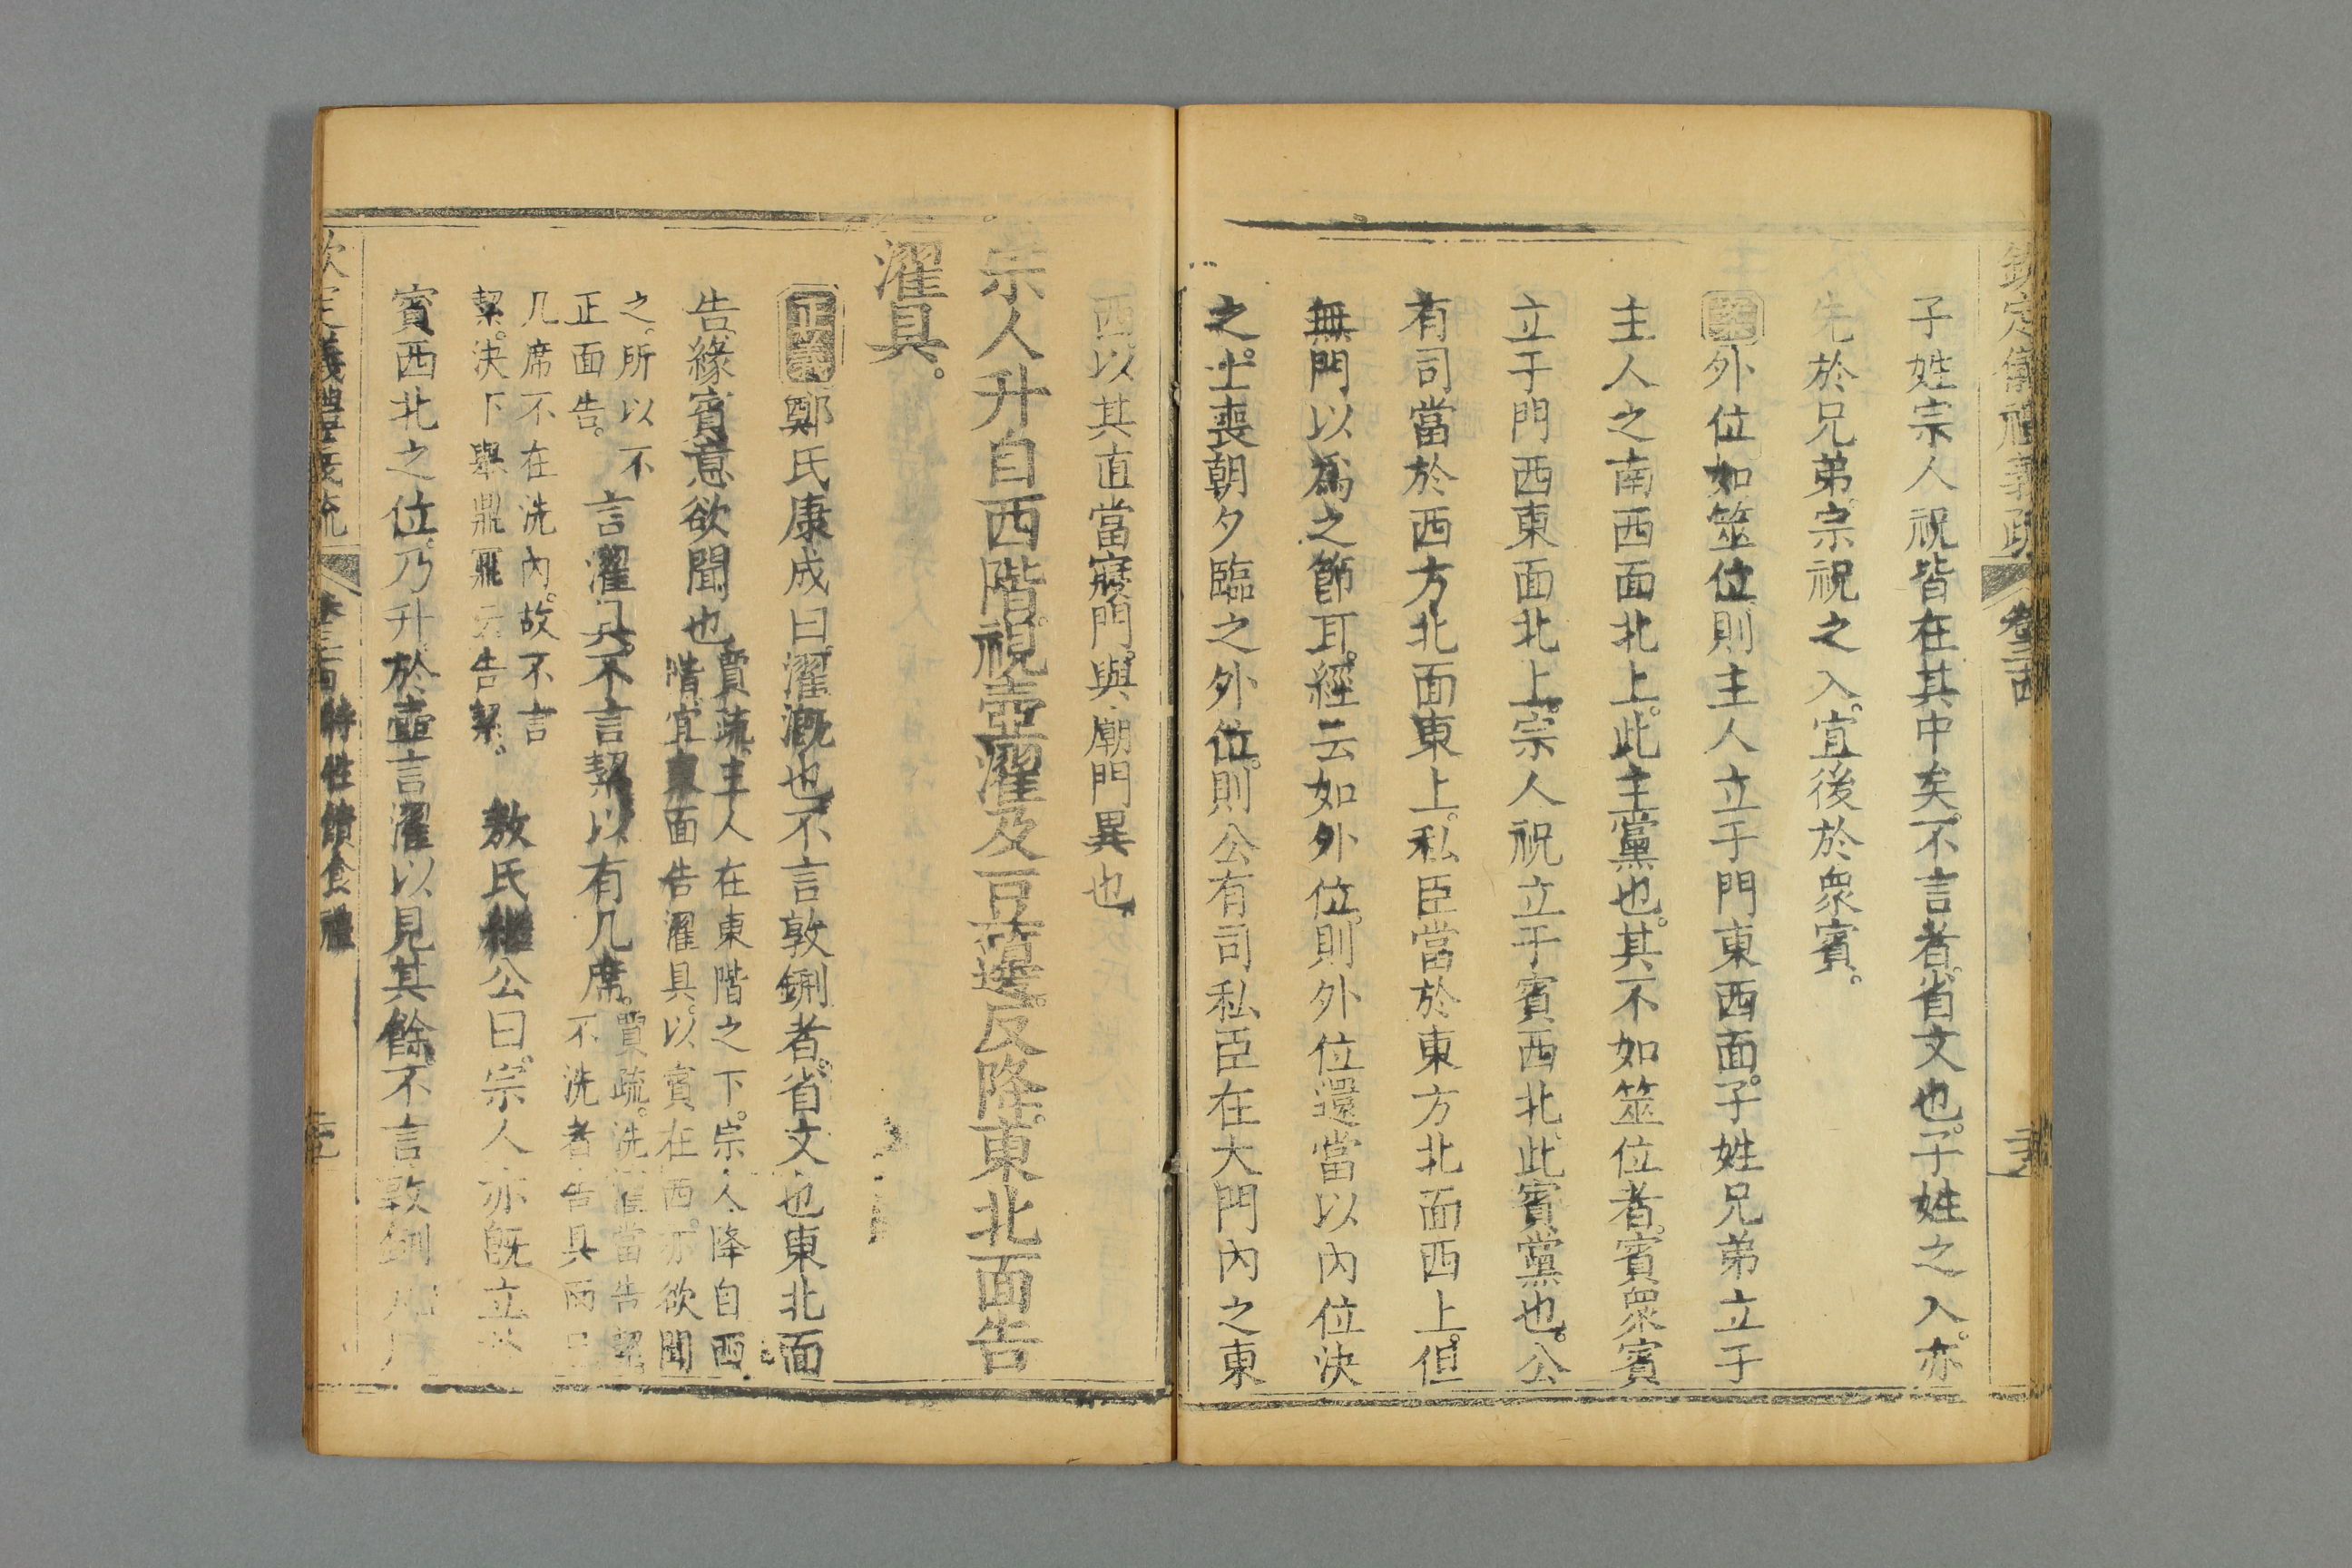 欽定儀禮義疏
子姓宗人祝皆在其中矣。不言者。省文也。子姓之入。亦
先於兄弟。宗祝之入。宜後於衆賓。
案外位如筮位則主人立于門東西面。子姓兄弟立于
主人之南西面北上。此主黨也。其不如筮位者。賓衆賓
立于門西東面北上。宗人祝立于賓西北。此賓黨也。公
有司當於西方北面東上。私臣當於東方北面西上。但
無門以為之節耳。經云如外位。則外位還當以內位決
之。上喪朝夕臨之外位。則公有司私臣在大門內之東
西。以其直當寢門。與廟門異也。
宗人升自西階。視壺濯及豆籩。反降。東北面告
濯具。
正義鄭氏康成曰。濯漑也。不言敦鉶者。省文也。東北面
告。緣賓意欲聞也。賈疏。主人在東階之下。宗人降自西
階。宜東面告濯具。以賓在西。亦欲聞
之。所以不
正面告。言濯具。不言絜。以有几席。賈疏。洗濯當告絜
不洗者告具而已
几席不在洗內。故不言
絜。決下舉鼎鼏云告絜。敖氏繼公曰。宗人亦旣立
賓西北之位。乃升。於壺言濯以見其餘。不言敦鉶
特牲饋食禮